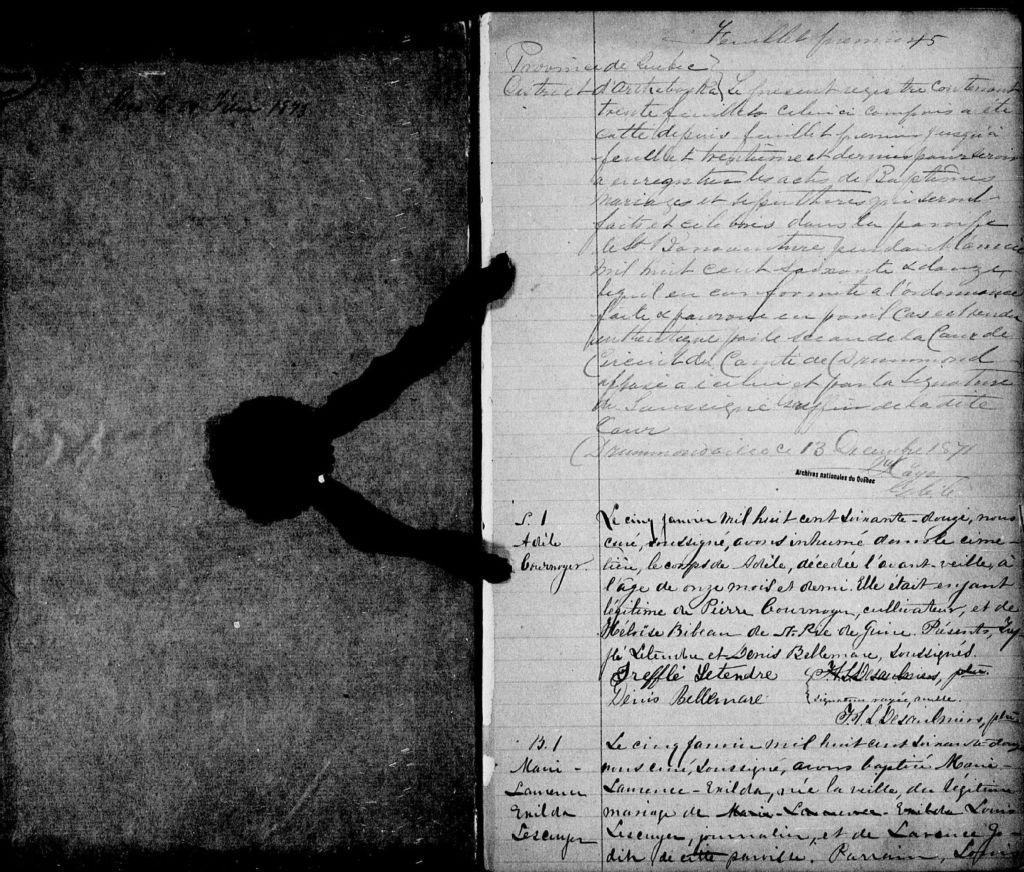 Feuillet premier 45
Province de Québec
District d'Arthabaska } Le présent registre contenant
trente feuillets celui ci compris a été
cotté depuis feuillet premier jusqu'à
feuillet trentième et dernier pour servir
a enregistrer les actes de Baptêmes
mariages et sepultures qui seront
faits et celebrés dans la paroisse
de St Bonaventure pendant l'année
mil huit cent soixante & douze
lequel en conformité a l'ordonnance
faite & pourvue en pareil cas est rendu
authentique par le sceau de la Cour de
Circuit du Comté de Drummond
apposé a icelui et par la signature
du Soussigné Greffier de la dite
Cour
Drummondville ce 13 Décembre 1871
Archives nationales du Québec
S. 1
Adèle
Cournoyer.
Le cinq janvier mil huit cent soixante-douze, nous
curé, soussigné, avons inhumé dans le cime-
tière, le corps de Adèle, décédée l'avant-veille, à
l'âge de onze mois et demi. Elle était enfant
légitime de Pierre Cournoyer, cultivateur, et de
Héloïse Bibeau de St. Pie de Guire. Présents, Tref-
flé Letendre et Denis Bellemare, soussignés.
Trefflé Letendre
Denis Bellemare
F.X.L. Desaulniers, ptre.
signature rayée, nulle.
F.X.L. Desaulniers, ptre
B. 1
Marie-
Laurence
Exilda
Lescuyer
Le cinq janvier mil huit cent soixante-douze
nous curé, soussigné, avons baptisé Marie-
Laurence-Exilda, née la veille, du légitime
mariage de Marie-Laurence-Exilda Louis
Lescuyer, journalier, et de Laurence
de cette paroisse. Parrain, Louis